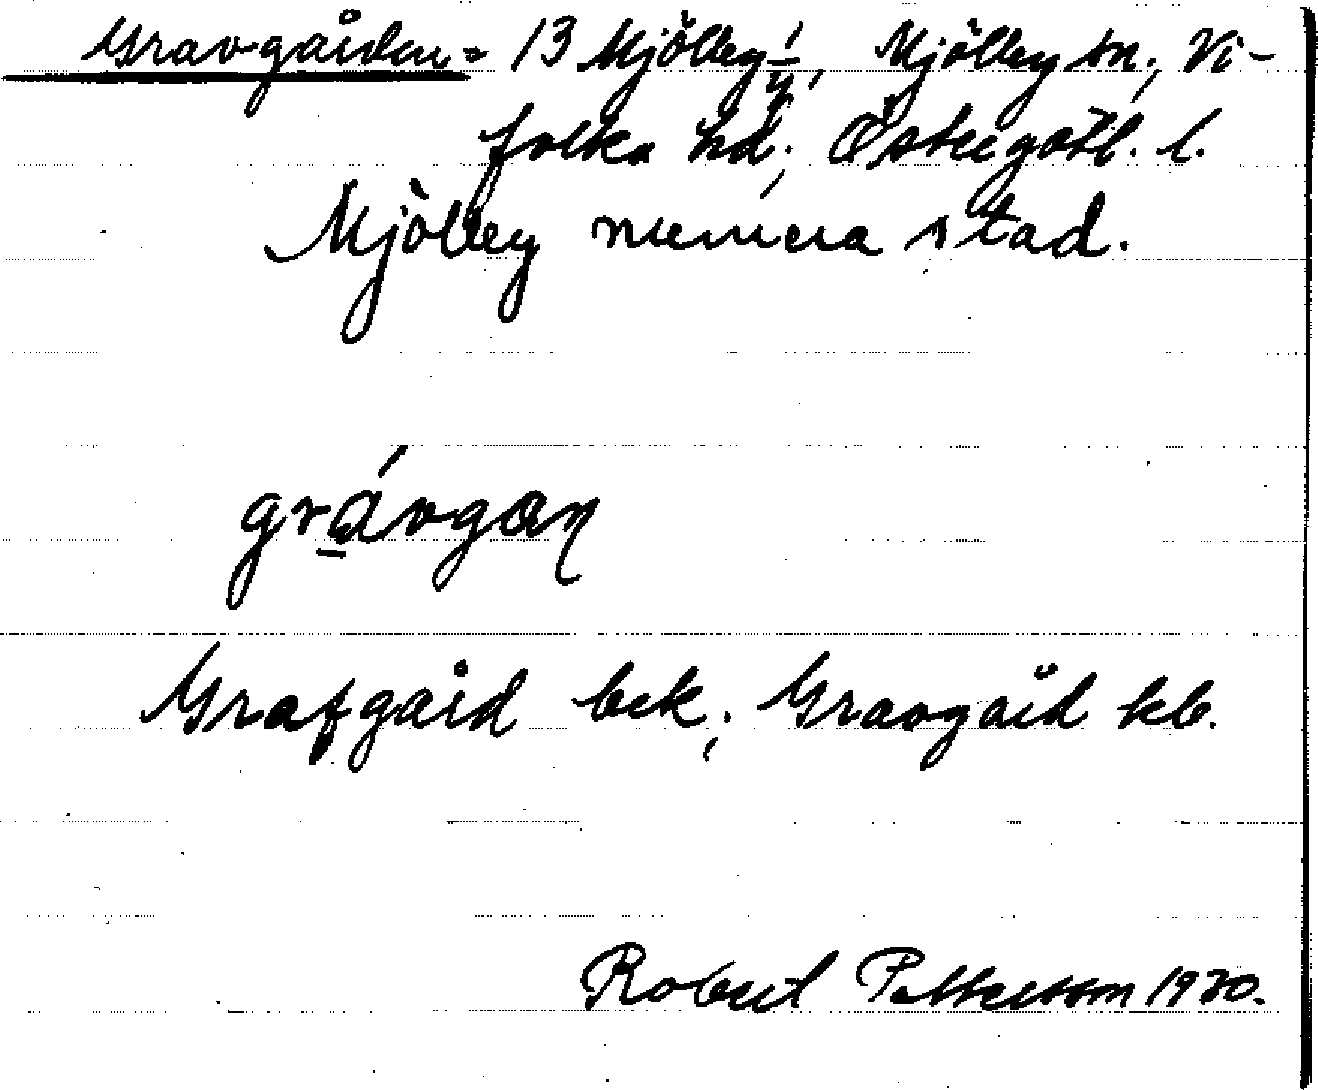 Gravgården = 13 Mjölby 1/4, Mjölby sn; Vi-
folka hd; Östergötl. l.
Mjölby numera stad.
grávgan
Grafgård bek; Gravgård kb.
Robert Pettersson 1930.